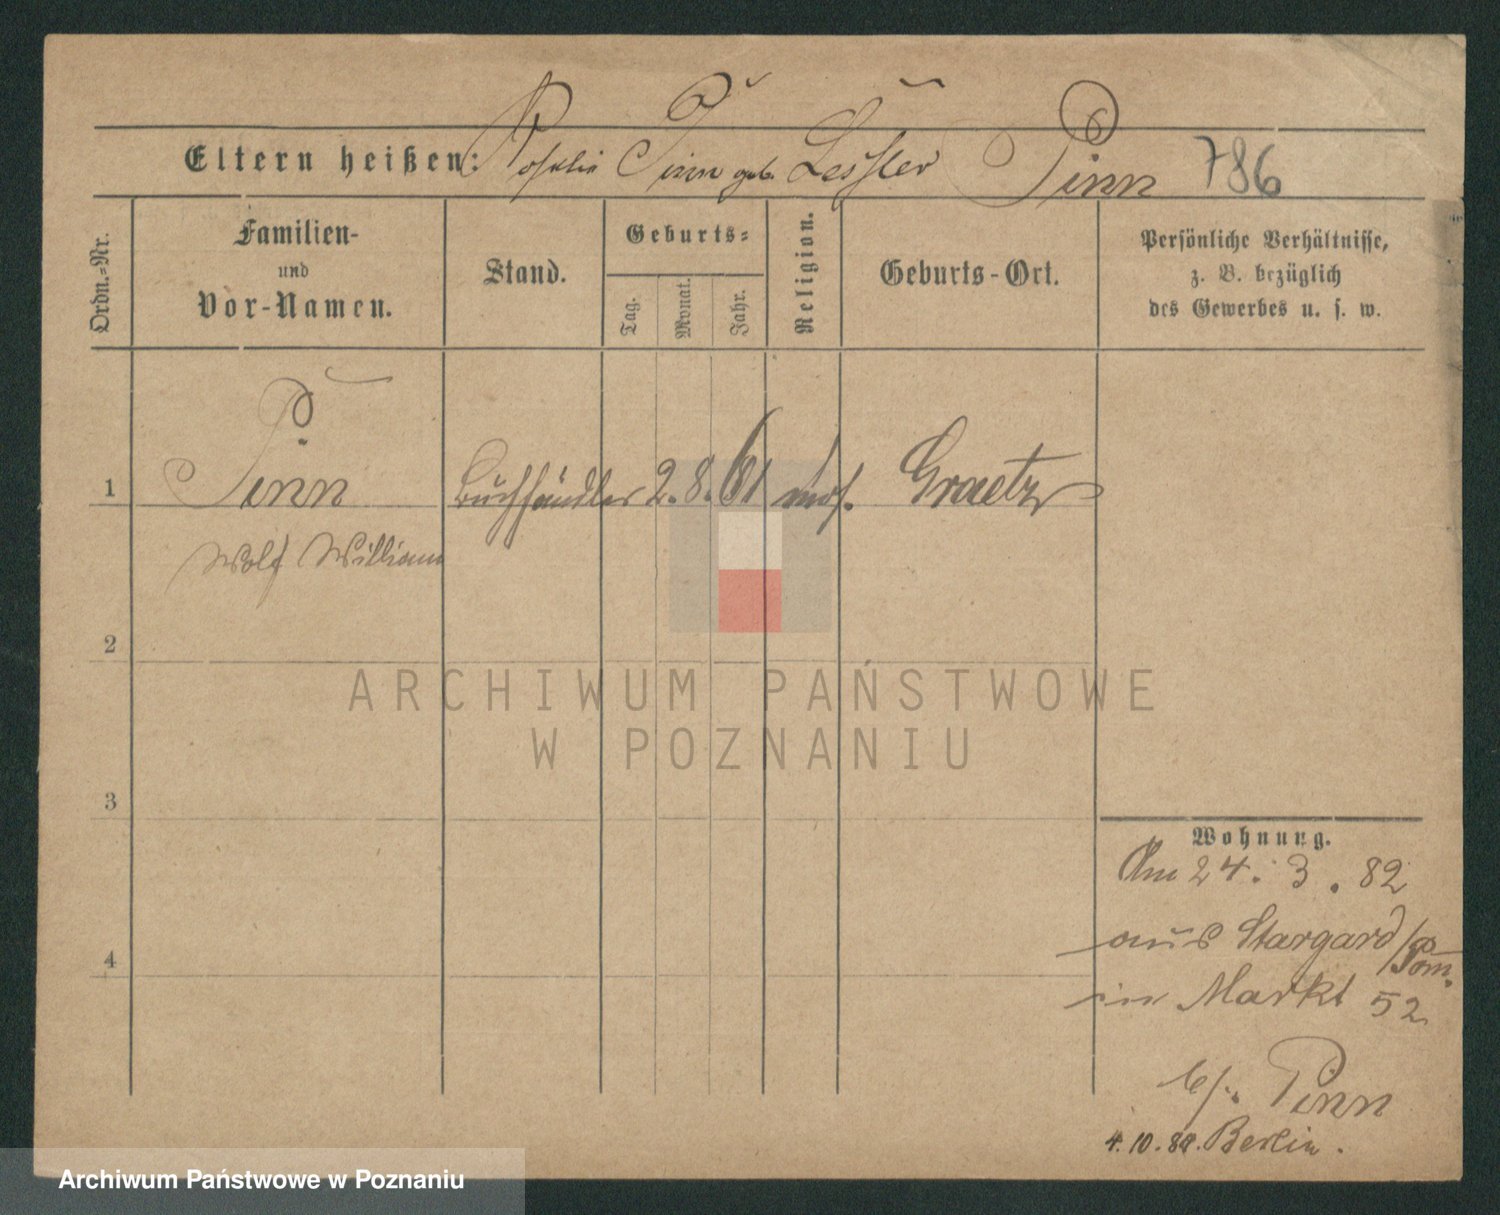 Eltern heißen: Rosalie Pinn geb. Lessler Pinn 786
Ordn.-Nr.
Familien-
und
Vor-Namen.
Stand.
Geburts-
Tag.
Monat.
Jahr.
Religion.
Geburts-Ort.
Persönliche Verhältnisse,
z. B. bezüglich
des Gewerbes u. s. w.
1 Pinn Buchhändler 2. 8. 61 mos. Graetz
Wolf William
2
3
4
Wohnung.
Am 24. 3. 82
aus Stargard/Pom.
in Markt 52
bei Pinn
4.10.82. Berlin.
ARCHIWUM PAŃSTWOWE
W POZNANIU
Archiwum Państwowe w Poznaniu